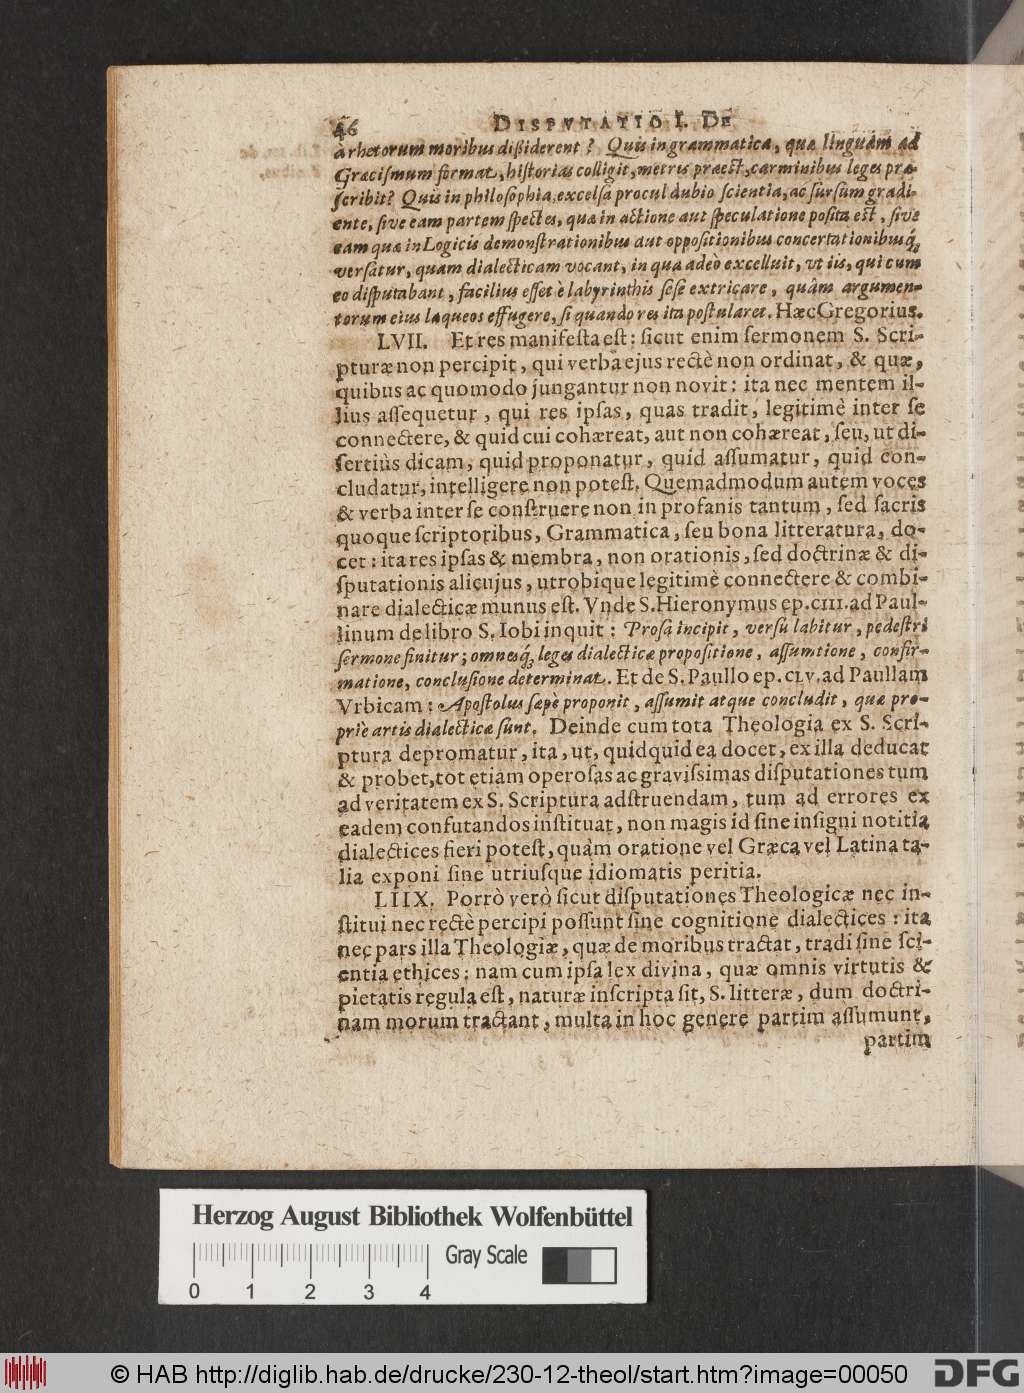 46 DISPVTATIO I. DE
à rhetorum moribus dißiderent? Quis in grammatica, quæ linguam ad
Græciſmum format, hiſtorias colligit, metris præeſt, carminibus leges præ-
ſcribit? Quis in philoſophia, excelſa procul dubio ſcientia, ac ſurſum gradi-
ente, ſive eam partem ſpectes, quæ in actione aut ſpeculatione poſita eſt, ſive
eam quæ in Logicis demonſtrationibus aut oppoſitionibus concertationibusq́;
verſatur, quam dialecticam vocant, in qua adeò excelluit, vt iis, qui cum
eo diſputabant, facilius eſſet è labyrinthis ſeſe extricare, quâm argumen-
torum eius laqueos effugere, ſi quando res ita poſtularet. Hæc Gregorius.
LVII. Et res manifeſta eſt: ſicut enim ſermonem S. Scri-
pturæ non percipit, qui verba ejus rectè non ordinat, & quæ,
quibus ac quomodo jungantur non novit: ita nec mentem il-
lius aſſequetur, qui res ipſas, quas tradit, legitimè inter ſe
connectere, & quid cui cohæreat, aut non cohæreat, ſeu, ut di-
ſertiùs dicam, quid proponatur, quid aſſumatur, quid con-
cludatur, intelligere non poteſt. Quemadmodum autem voces
& verba inter ſe conſtruere non in profanis tantum, ſed ſacris
quoque ſcriptoribus, Grammatica, ſeu bona litteratura, do-
cet: ita res ipſas & membra, non orationis, ſed doctrinæ & di-
ſputationis alicujus, utrobique legitimè connectere & combi-
nare dialecticæ munus eſt. Vnde S. Hieronymus ep. CIII. ad Paul-
linum de libro S. Iobi inquit: Proſa incipit, verſu labitur, pedeſtri
ſermone finitur; omnesq́; leges dialecticæ propoſitione, aſſumtione, confir-
matione, concluſione determinat. Et de S. Paullo ep. CLV. ad Paullam
Vrbicam: Apoſtolus ſæpè proponit, aſſumit atque concludit, quæ pro-
priè artis dialecticæ ſunt. Deinde cum tota Theologia ex S. Scri-
ptura depromatur, ita, ut, quidquid ea docet, ex illa deducat
& probet, tot etiam operoſas ac graviſsimas diſputationes tum
ad veritatem ex S. Scriptura adſtruendam, tum ad errores ex
eadem confutandos inſtituat, non magis id ſine inſigni notitia
dialectices fieri poteſt, quàm oratione vel Græca vel Latina ta-
lia exponi ſine utriuſque idiomatis peritia.
LIIX. Porrò verò ſicut diſputationes Theologicæ nec in-
ſtitui nec rectè percipi poſſunt ſine cognitione dialectices: ita
nec pars illa Theologiæ, quæ de moribus tractat, tradi ſine ſci-
entia ethices; nam cum ipſa lex divina, quæ omnis virtutis &
pietatis regula eſt, naturæ inſcripta ſit, S. litteræ, dum doctri-
nam morum tractant, multa in hoc genere partim aſſumunt,
partim
Herzog August Bibliothek Wolfenbüttel
Gray Scale
0 1 2 3 4
© HAB http://diglib.hab.de/drucke/230-12-theol/start.htm?image=00050
DFG